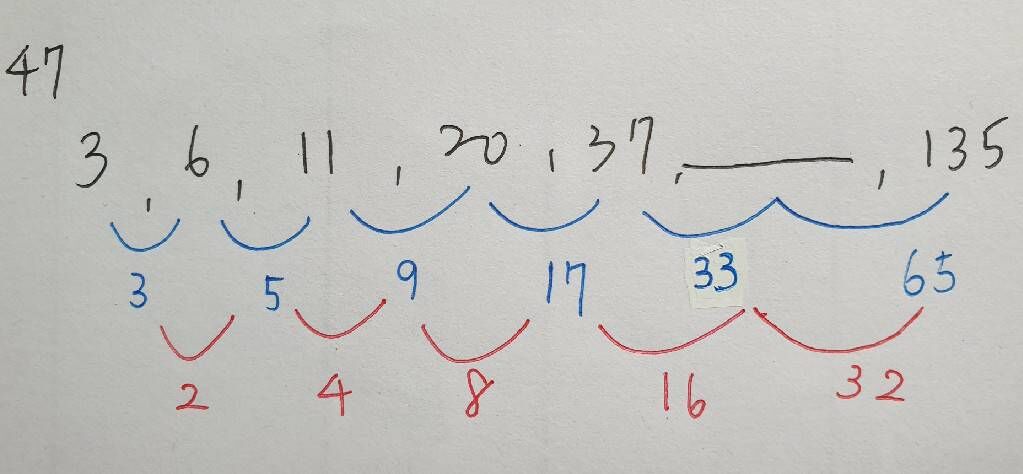 47
3, 6, 11, 20, 37, ______, 135
3 5 9 17 33 65
2 4 8 16 32